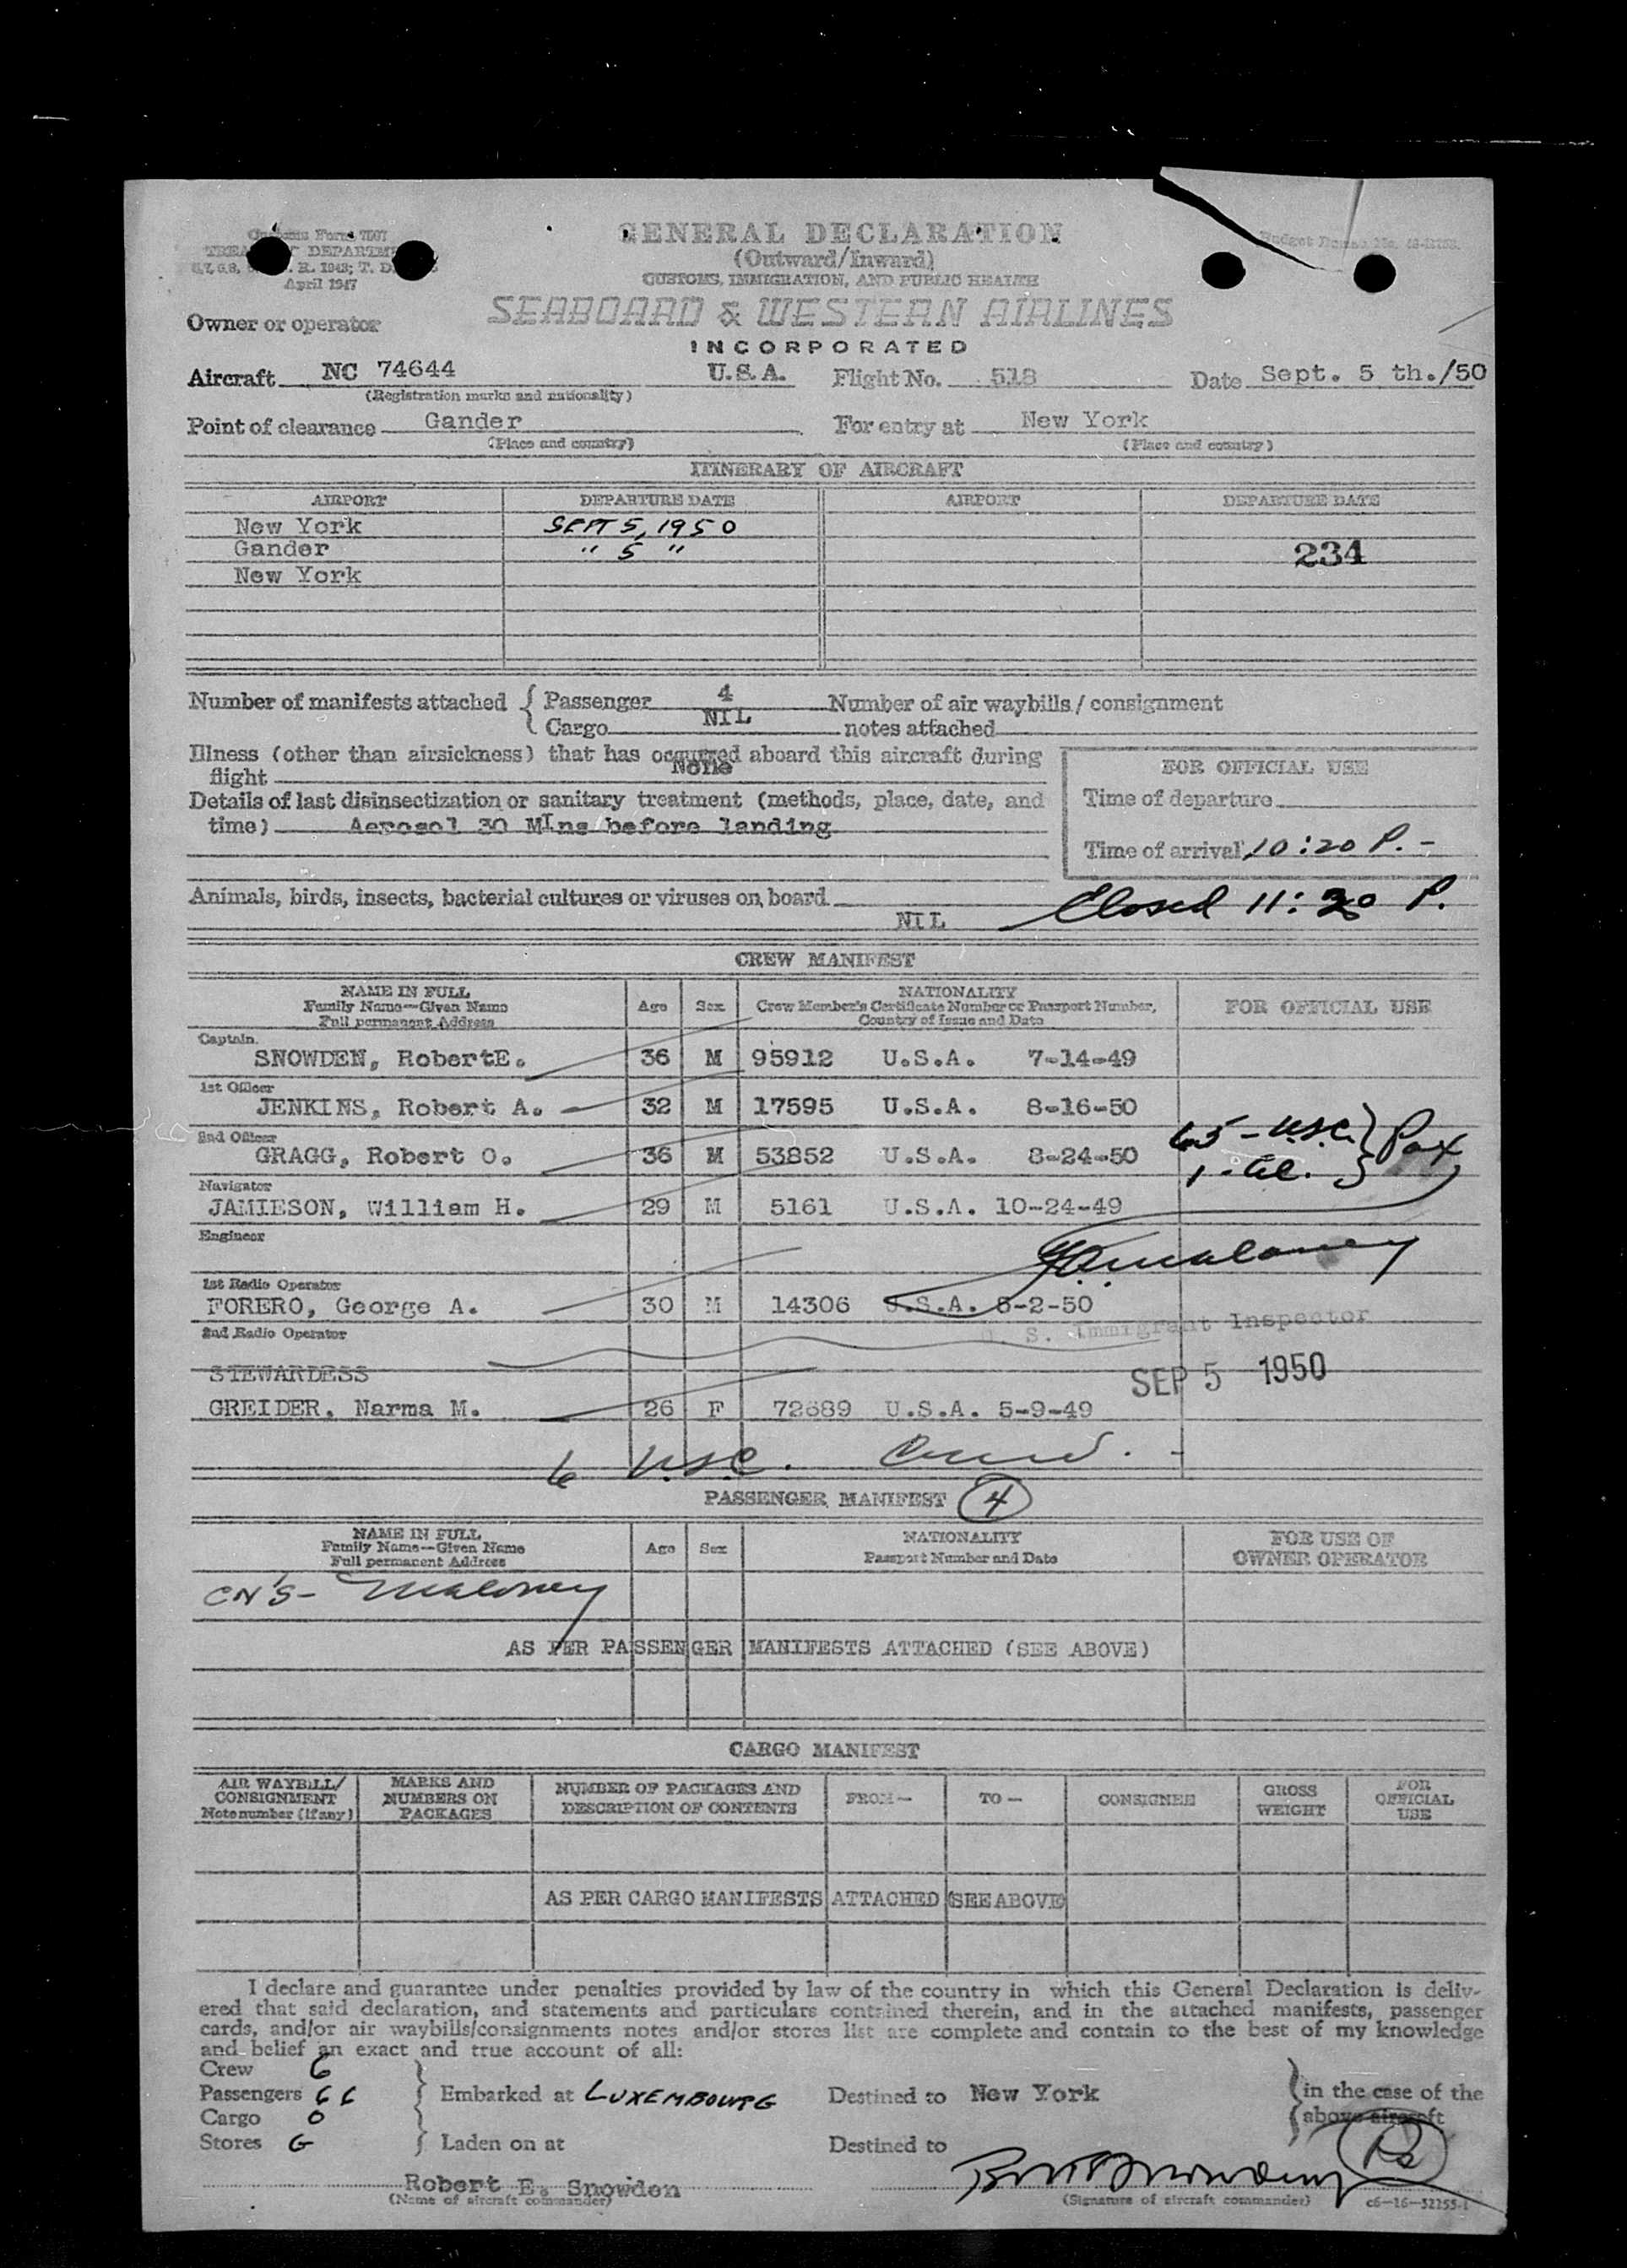 Customs Form 7507
GENERAL DECLARATION
(Outward/Inward)
CUSTOMS, IMMIGRATION, AND PUBLIC HEALTH
April 1947
SEABOARD & WESTERN AIRLINES
INCORPORATED
Owner or operator
Aircraft NC 74644 U.S.A. Flight No. 518 Date Sept. 5 th./50
(Registration marks and nationality)
Point of clearance Gander For entry at New York
(Place and country) (Place and country)
ITINERARY OF AIRCRAFT
AIRPORT DEPARTURE DATE AIRPORT DEPARTURE DATE
New York SEPT 5, 1950
Gander " 5 " 234
New York
Number of manifests attached { Passenger 4 Number of air waybills / consignment
Cargo NIL notes attached
Illness (other than airsickness) that has occurred aboard this aircraft during
flight None
FOR OFFICIAL USE
Details of last disinsectization or sanitary treatment (methods, place, date, and
time) Aerosol 30 MIns before landing
Time of departure
Time of arrival 10:20 P. -
Animals, birds, insects, bacterial cultures or viruses on board NIL
Closed 11:30 P.
CREW MANIFEST
NAME IN FULL
Family Name—Given Name
Full permanent Address
Age Sex
NATIONALITY
Crew Member's Certificate Number or Passport Number,
Country of Issue and Date
FOR OFFICIAL USE
Captain
SNOWDEN, RobertE. 36 M 95912 U.S.A. 7-14-49
1st Officer
JENKINS, Robert A. 32 M 17595 U.S.A. 8-16-50
2nd Officer
GRAGG, Robert O. 36 M 53852 U.S.A. 8-24-50
65 - U.S.C. } Pax
1 - Al. }
Navigator
JAMIESON, William H. 29 M 5161 U.S.A. 10-24-49
Engineer
Maloney
1st Radio Operator
FORERO, George A. 30 M 14306 U.S.A. 8-2-50
U. S. Immigrant Inspector
2nd Radio Operator
STEWARDESS
SEP 5 1950
GREIDER, Narma M. 26 F 72689 U.S.A. 5-9-49
6 U.S.C.
PASSENGER MANIFEST 4
NAME IN FULL
Family Name—Given Name
Full permanent Address
Age Sex
NATIONALITY
Passport Number and Date
FOR USE OF
OWNER OPERATOR
CN'S - Maloney
AS PER PASSENGER MANIFESTS ATTACHED (SEE ABOVE)
CARGO MANIFEST
AIR WAYBILL/
CONSIGNMENT
Note number (if any)
MARKS AND
NUMBERS ON
PACKAGES
NUMBER OF PACKAGES AND
DESCRIPTION OF CONTENTS
FROM—
TO—
CONSIGNEE
GROSS
WEIGHT
FOR
OFFICIAL
USE
AS PER CARGO MANIFESTS ATTACHED (SEE ABOVE)
I declare and guarantee under penalties provided by law of the country in which this General Declaration is deliv-
ered that said declaration, and statements and particulars contained therein, and in the attached manifests, passenger
cards, and/or air waybills/consignments notes and/or stores list are complete and contain to the best of my knowledge
and belief an exact and true account of all:
Crew 6
Passengers 66 } Embarked at LUXEMBOURG Destined to New York } in the case of the
Cargo 0 above aircraft
Stores G } Laden on at Destined to
Robert E. Snowden
(Name of aircraft commander) (Signature of aircraft commander) c6—16—52255-1